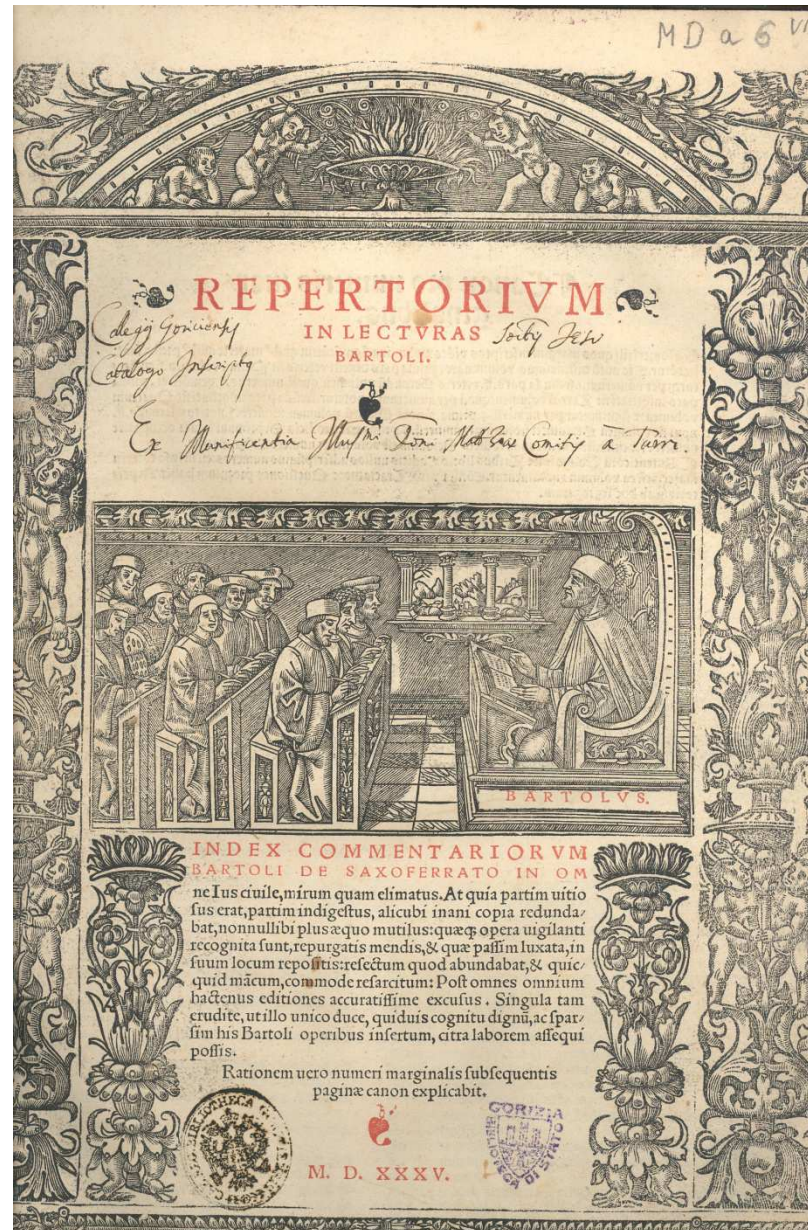 MD a 6 VI
REPERTORIVM
IN LECTVRAS
BARTOLI.
Collegij Goriciensis Socty Jesu
Catalogo Inscriptq
Ex Munificentia Illusmi Domi Matthiae Comitis à Turri.
BARTOLVS.
INDEX COMMENTARIORVM
BARTOLI DE SAXOFERRATO IN OM
ne Ius ciuile, mirum quam elimatus. At quia partim uitio
sus erat, partim indigestus, alicubi inani copia redunda-
bat, nonnullibi plus æquo mutilus: quæq; opera uigilanti
recognita sunt, repurgatis mendis, & quæ passim luxata, in
suum locum repositis: resectum quod abundabat, & quic-
quid mãcum, commode resarcitum: Post omnes omnium
hactenus editiones accuratissime excusus. Singula tam
erudite, ut illo unico duce, quiduis cognitu dignũ, ac spar-
sim his Bartoli operibus insertum, citra laborem assequi
possis.
Rationem uero numeri marginalis subsequentis
paginæ canon explicabit.
BIBLIOTHECA
GORIZIA
BIBLIOTECA DI STATO
M. D. XXXV.